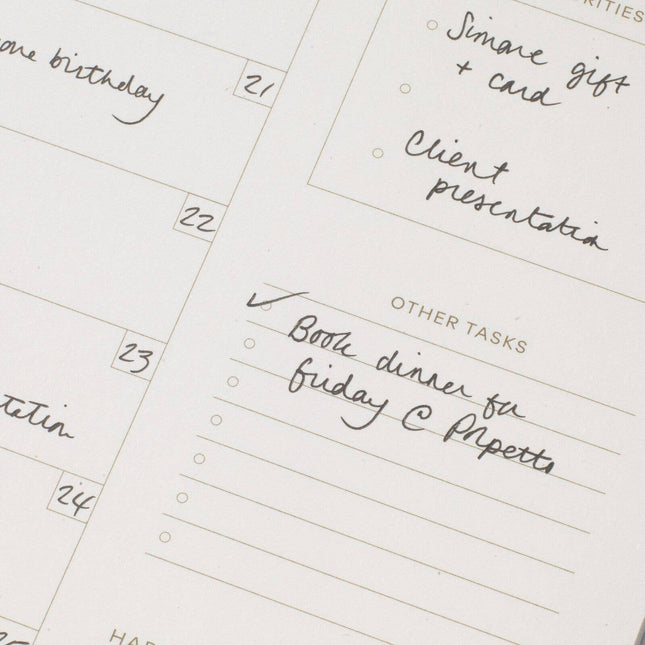 one birthday
21
22
23
tation
24
25
RITIES
Simone gift
+ card
Client
presentation
OTHER TASKS
Book dinner for
friday @ Polpetto
HAB